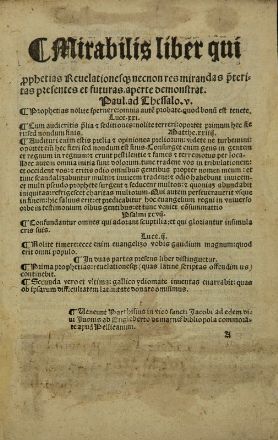 ¶Mirabilis liber qui
prophetias Reuelationesq; necnon res mirandas preteri
tas presentes et futuras. aperte demonstrat.
Paul. ad Thessalo. v.
¶Prophetias nolite spernere: omnia autē probate. quod bonū est tenete.
Luc. xxi.
¶Cum audieritis plia et seditiones: nolite terreri: oportet primum hec fie
ri sed nondum finis. Matthe. xxiiij.
¶Audituri enim estis prelia et opiniones preliorum: videte ne turbemini:
oportet enim hec fieri sed nondum est finis. Consurget enim gens in gentem
et regnum in regnum: et erunt pestilentie et fames et terremotus per loca.
Hec autem omnia initia sunt dolorum. tunc tradent vos in tribulationem: et
occident vos: et eritis odio omnibus gentibus propter nomen meum: et
tunc scandalizabuntur multi: et inuicem tradent: et odio habebunt inuicem.
et multi pseudo prophete surgent et seducent multos: et quoniam abundabit
iniquitas: refrigescet charitas multorum. Qui autem perseuerauerit vsque
in finem: hic saluus erit: et predicabitur hoc euangelium regni in vniuerso
orbe in testimonium omnibus gentibus: et tunc veniet consummatio
Psalmo xcvi.
¶Confundantur omnes qui adorant sculptilia: et qui gloriantur in simula
cris suis.
Luce. ij.
¶Nolite timere: ecce enim euangelizo vobis gaudium magnum: quod
erit omni populo.
¶In duas partes presens liber distinguetur.
¶Prima prophetias: reuelationesq; quas latine scriptas offendimus
continebit.
¶Secunda vero et vltima: gallico ydiomate inuentas enarrabit: quas
ob ipsarum difficultatem latinitate donare omisimus.
¶Venunt Parrhisiis in vico sancti Jacobi ad edem di
ui Juonis ab Engleberto de marnef bibliopola commora
te apud Pellicanum.
A